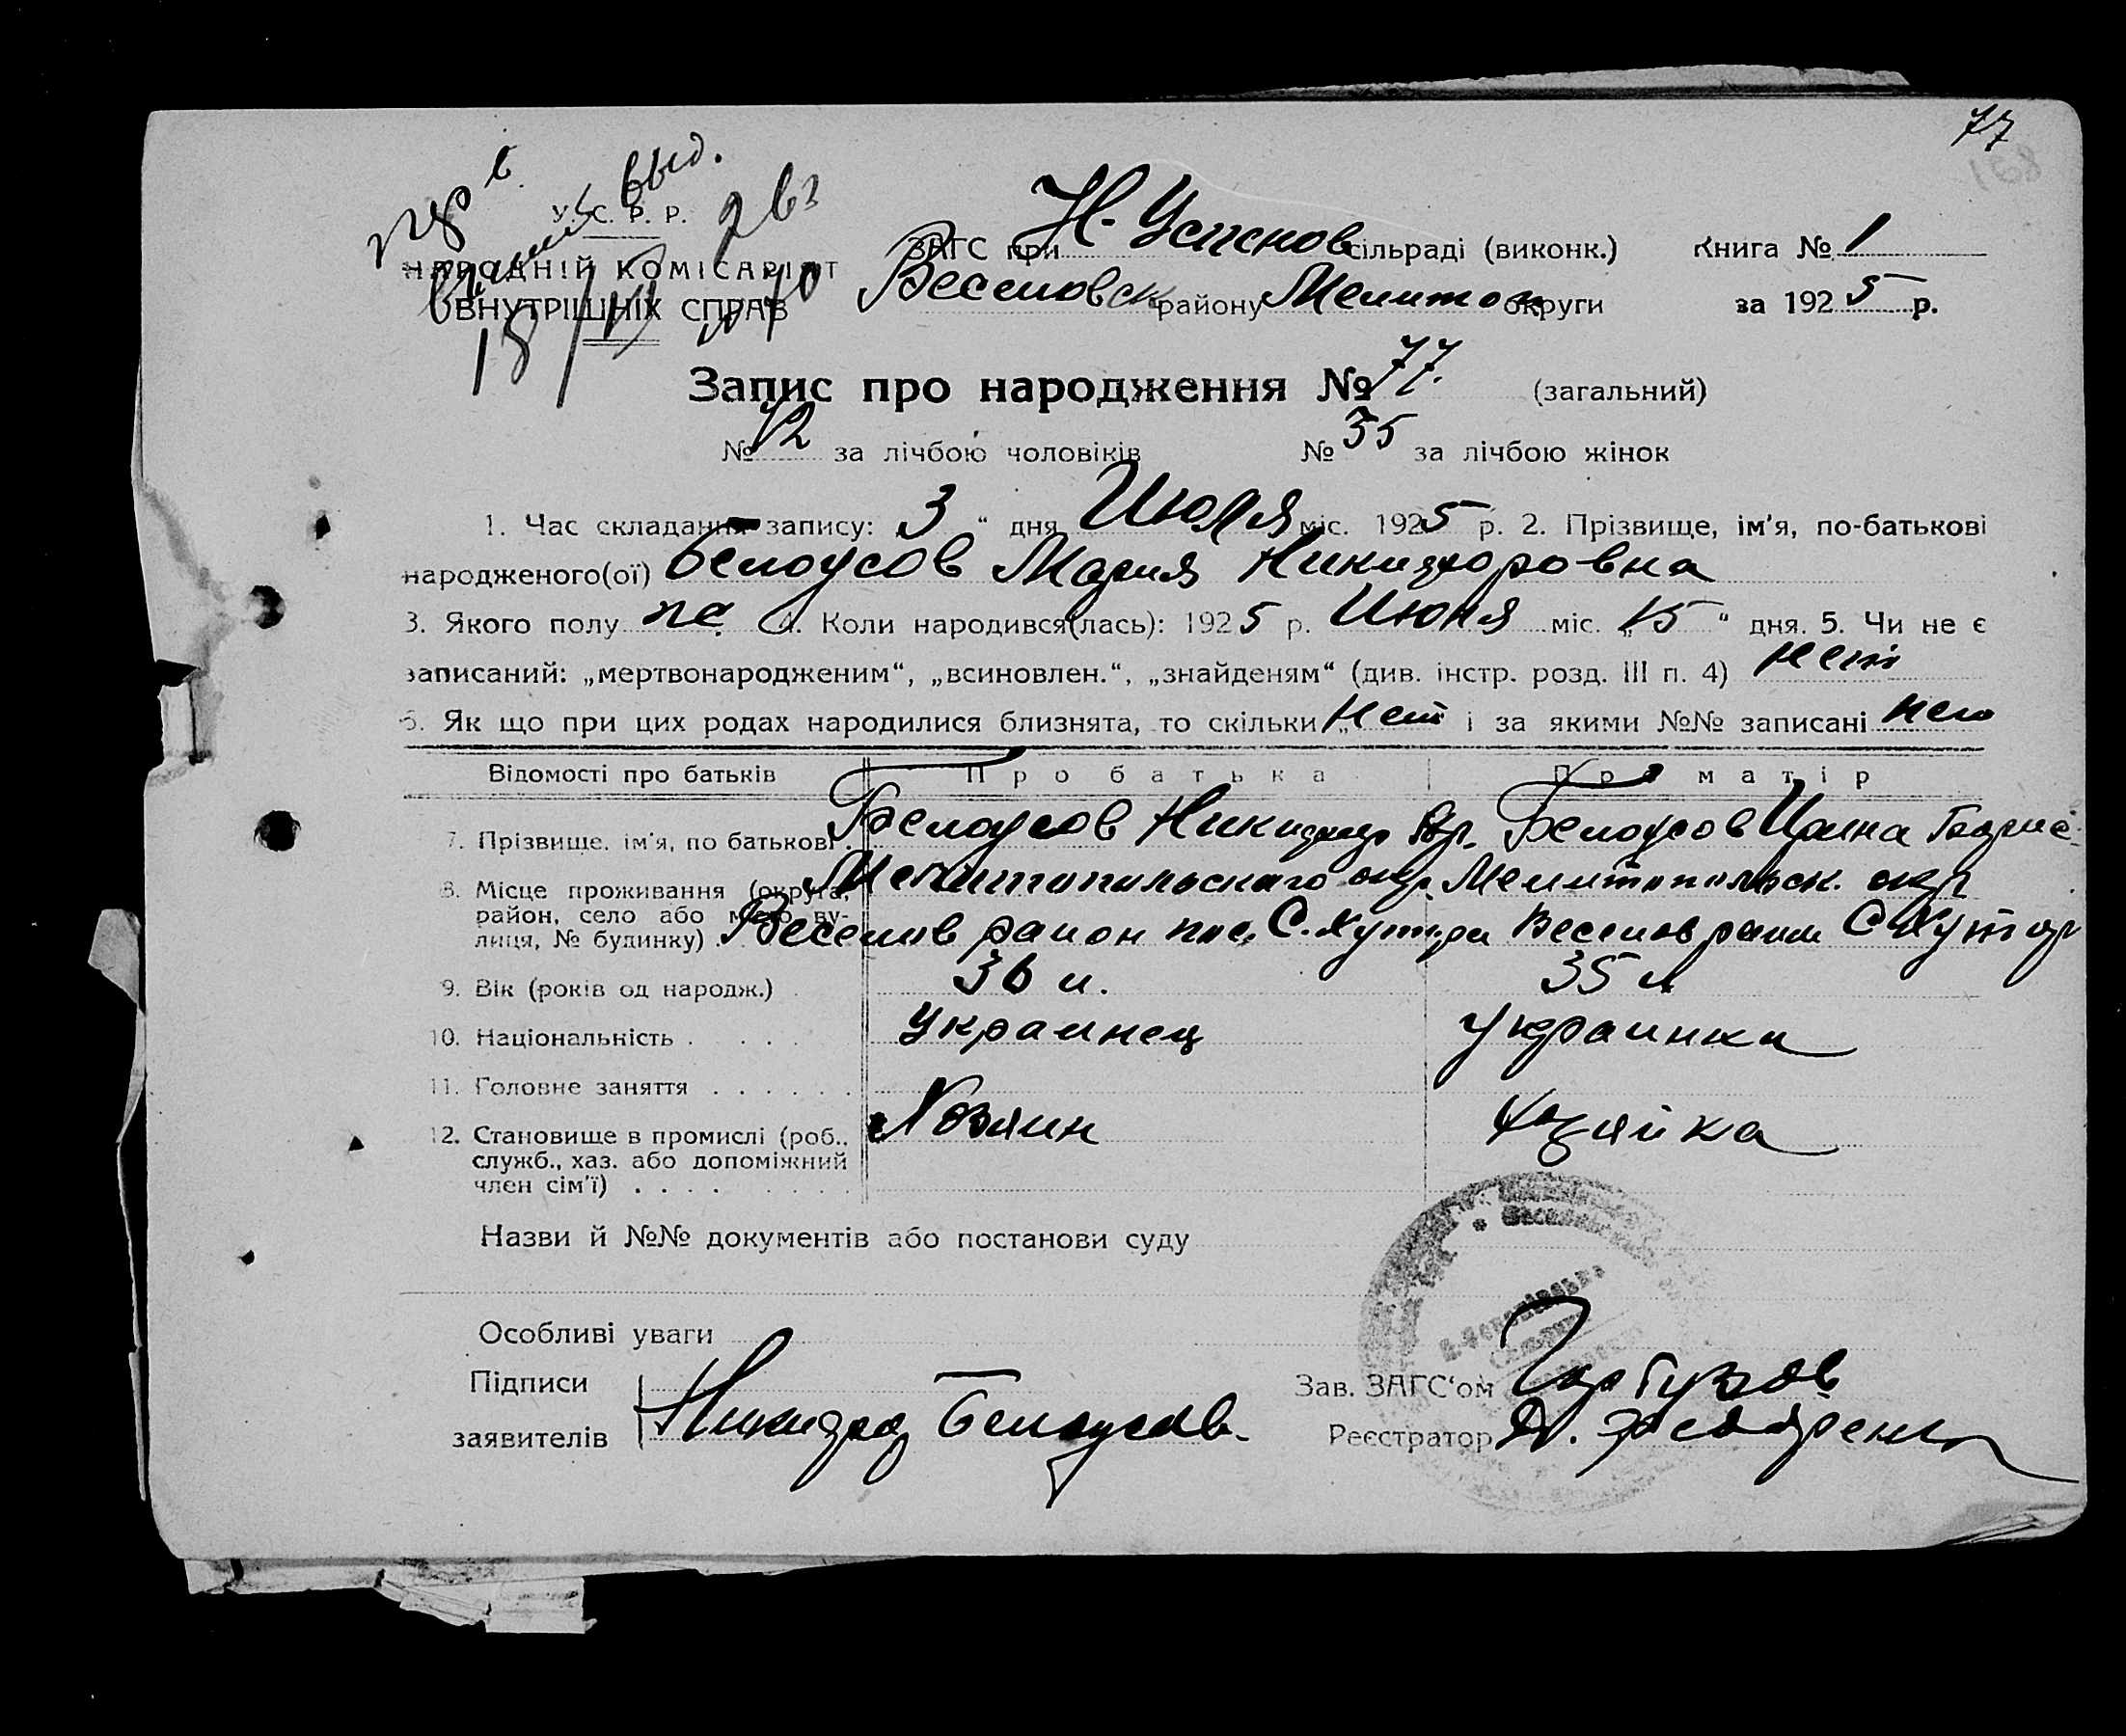 77
168
выд.
У. С. Р. Р.
НАРОДНІЙ КОМІСАРІЯТ
ВНУТРІШНІХ СПРАВ
ЗАГС при Н. Успенов сільраді (виконк.) Книга № 1
Веселовск району Мелитоп округи за 1925 р.
Запис про народження № 77. (загальний)
№ 42 за лічбою чоловіків № 35 за лічбою жінок
1. Час складання запису: „3“ дня Июля міс. 1925 р. 2. Прізвище, ім'я, по-батькові
народженого(ої) Белоусов Мария Никифоровна
3. Якого полу же 4. Коли народився(лась): 1925 р. Июня міс. „15“ дня. 5. Чи не є
записаний: „мертвонародженим“, „всиновлен.“, „знайденям“ (див. інстр. розд. III п. 4) нет
6. Як що при цих родах народилися близнята, то скільки нет і за якими №№ записані нет
Відомості про батьків Про батька Про матір
7. Прізвище, ім'я, по батькові. Белоусов Никифор Белоусов Ирина
8. Місце проживання (округа, район, село або місто, вулиця, № будинку) Мелитопольскаго окр. Мелитопольск. окр
Веселов район пос. С. Хутора Веселов район С Хутор
9. Вік (років од народж.) 36 л. 35 л
10. Національність Украинец Украинка
11. Головне заняття
12. Становище в промислі (роб., служб., хаз. або допоміжний член сім'ї) Хозяин Хозяйка
Назви й №№ документів або постанови суду
Особливі уваги
Підписи
заявителів Никифор Белоусов.
Зав. ЗАГС‘ом
Реєстратор